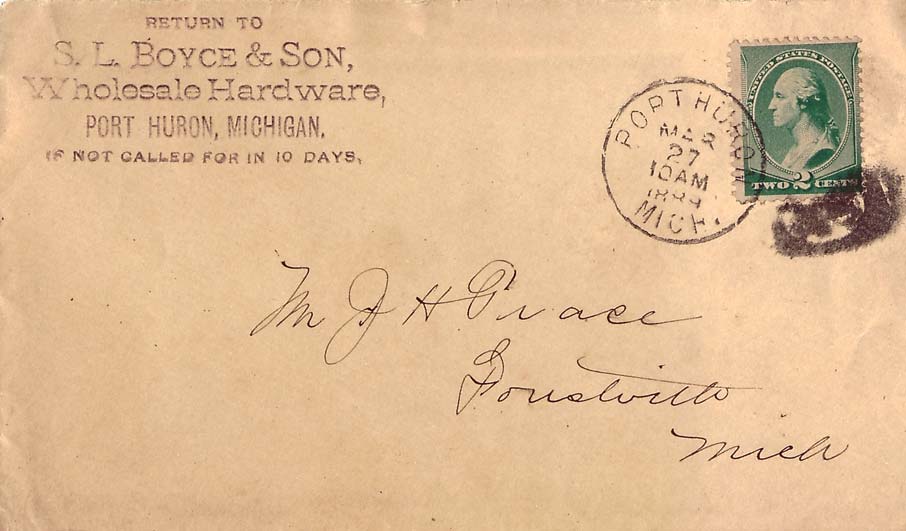 RETURN TO
S. L. BOYCE & SON,
Wholesale Hardware,
PORT HURON, MICHIGAN.
IF NOT CALLED FOR IN 10 DAYS,
UNITED STATES POSTAGE
TWO 2 CENTS
PORT HURON
MAR
27
10AM
1889
MICH.
Mr J H
Mich